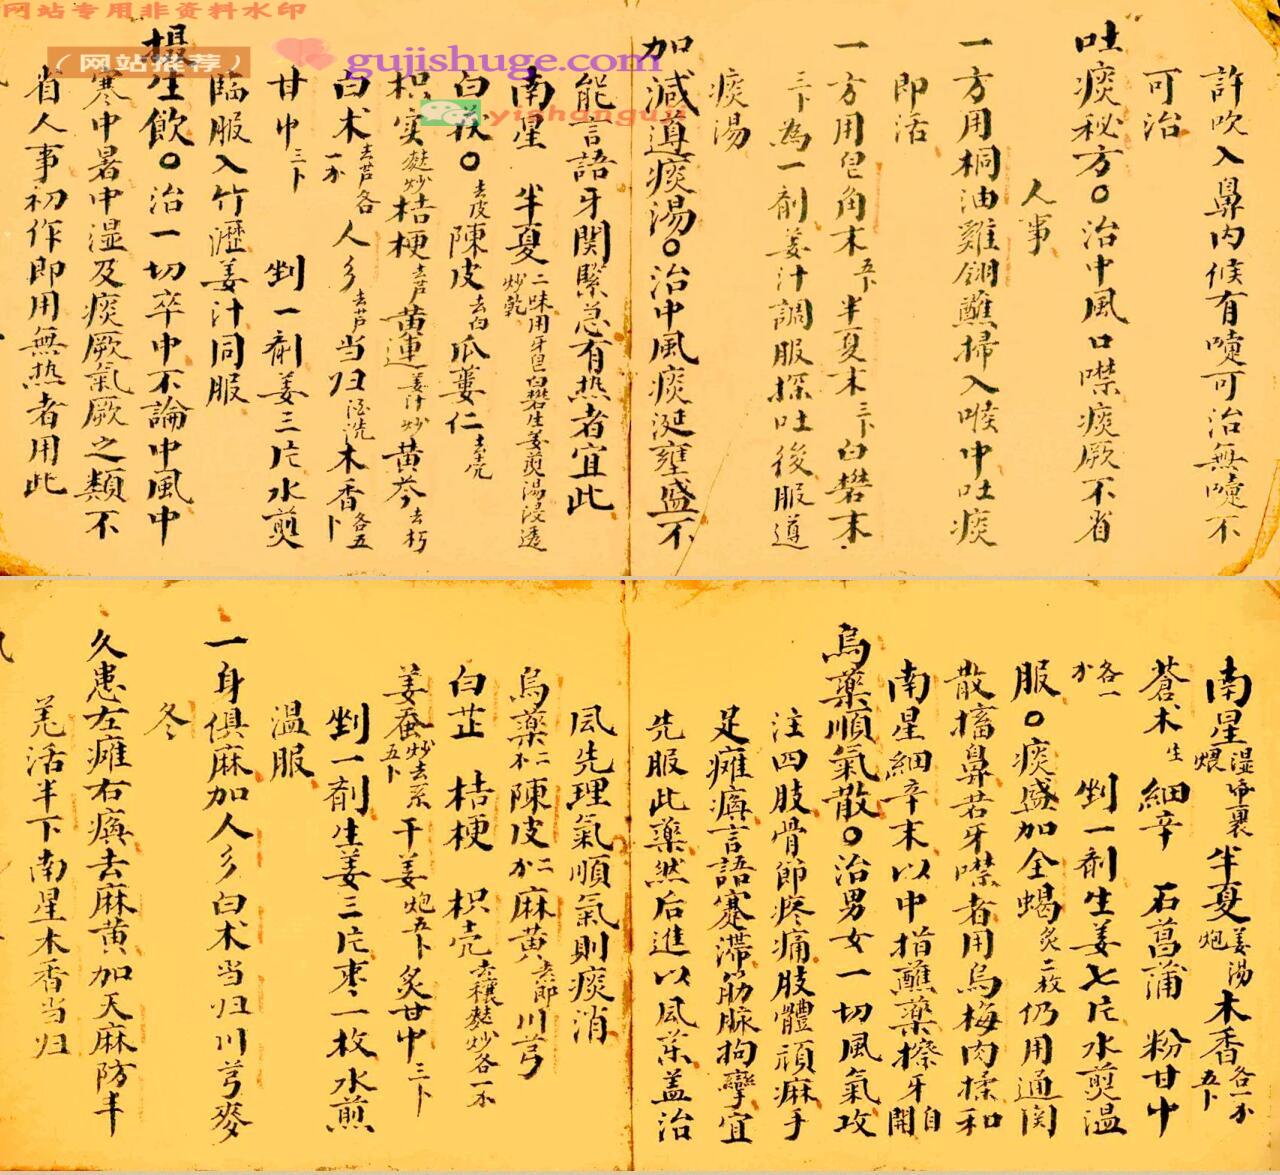 网站专用非资料水印
（网站推荐）
gujishuge.com
yishanguji
許吹入鼻内候有嚏可治無嚏不
可治
吐痰秘方〇治中風口噤痰厥不省
人事
一方用桐油雞翎蘸掃入喉中吐痰
即活
一方用皂角末五卜半夏末三卜白礬末
三卜為一劑姜汁調服探吐後服導
痰湯
加減導痰湯〇治中風痰涎壅盛不
能言語牙関緊急有热者宜此
南星 半夏二味用牙皂白礬生姜煎湯浸透炒乾
白茯〇去皮陳皮去白瓜蔞仁去壳
枳实麸炒桔梗去芦黄連姜汁炒黄芩去朽
白术去芦各一不人乡去芦当归酒洗木香各五卜
甘中三卜 剉一劑姜三片水煎
臨服入竹瀝姜汁同服
摄生飲〇治一切卒中不論中風中
寒中暑中湿及痰厥氣厥之類不
省人事初作即用無热者用此
南星湿帋裹煨半夏姜湯炮木香各一不五卜
蒼术生 細辛 石菖蒲 粉甘中
各一不 剉一劑生姜七片水煎温
服〇痰盛加全蝎炙二枚仍用通関
散搐鼻若牙噤者用烏梅肉揉和
南星細辛末以中指蘸藥擦牙自開
烏藥順氣散〇治男女一切風氣攻
注四肢骨節疼痛肢體頑麻手
足癱瘓言語蹇滞筋脉拘攣宜
先服此藥然后進以風藥盖治
風先理氣順氣則痰消
烏藥二不陳皮二不麻黄去節川芎
白芷 桔梗 枳壳去穰麸炒各一不
姜蚕炒去系五卜干姜炮五卜炙甘中三卜
剉一劑生姜三片枣一枚水煎
温服
一身俱麻加人乡白术当归川芎麥
冬
久患左癱右瘓去麻黄加天麻防丰
羌活半下南星木香当归